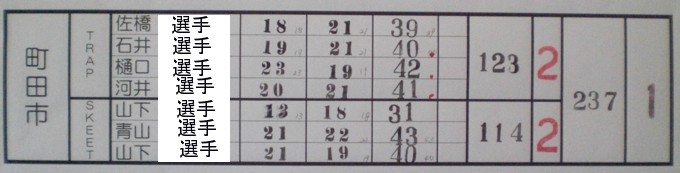 町田市
TRAP
佐橋 選手 18 21 39
石井 選手 19 21 40
樋口 選手 23 19 42
河井 選手 20 21 41
123 2
SKEET
山下 選手 13 18 31
青山 選手 21 22 43
山下 選手 21 19 40
114 2
237 1